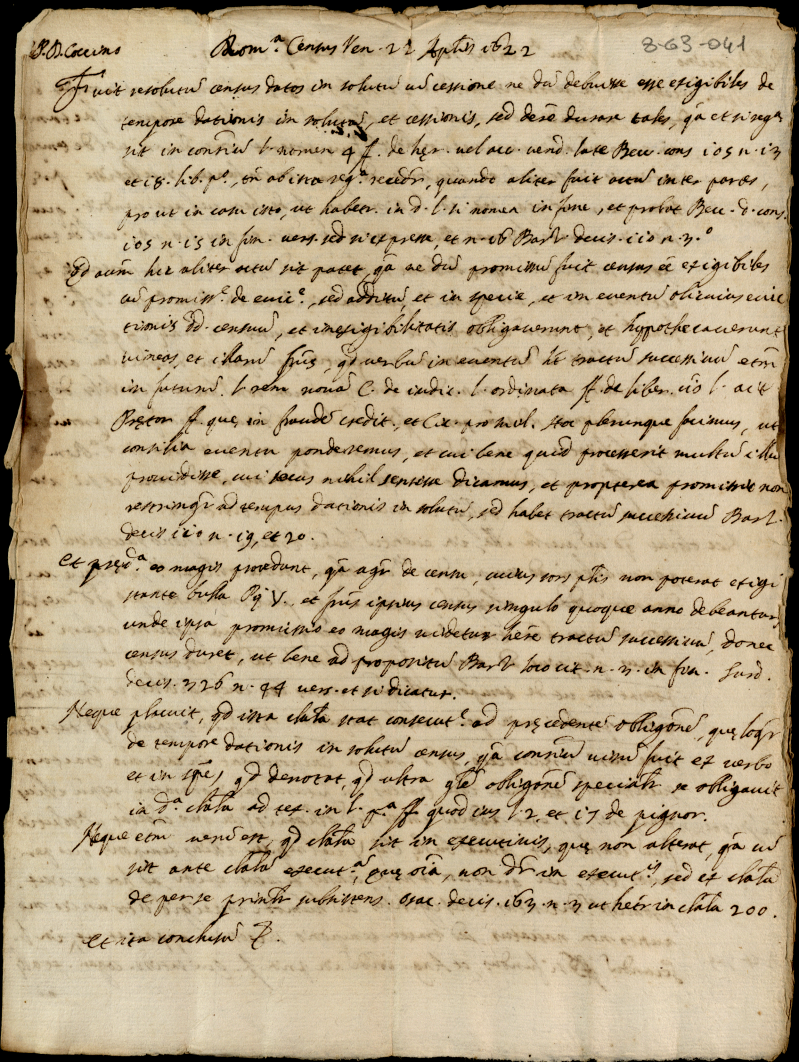 R. P. D. Coccino Rom.ᵃ Census Ven. 22 Aplis 1622 8-63-041
Fuit resolutū census datos in solutū cū cessione ne dū debuisse esse exigibiles de
tempore dationis in solutū, et cessionis, sed deře durare tales, qᵃ et si reg.ᵃ
sit in l. nomen 4 ff. de hęr. vel act. vend. late Becc. cons 105 n. 13
et 18. lib. p.º, tñ ab ista reg.ᵃ quando aliter fuit actū inter partes,
prout in casu isto, ut habetr. in d. l. si nomen in fine, et probat Becc. d. cons.
105 n. 15 in fin. vers. sed si expresse, et n. 16 Barł decis. 110 n. 3.º
Qd autm̄ hic aliter actū sit patet, qᵃ ne dū promissū fuit census eē exigibiles
cū promiss.ᵉ de evic.ᵉ, sed additū et in specie, et in eventū evic
tionis dd. censuū, et inexigibilitatis obligaverunt, et hypothecaverunt
vineas, et qd verbū in eventū ht tractū successivū etm̄
in futurū l. rem novā C. de iudic. l. ordinata ff. de liber. l. ait
Prętor ff. quę in fraudē credit. et Cic. pro Mil. Hoc plerunque facimus, ut
consilia eventu ponderemus, et cui bene quid processerit multū illū
providisse, cui secus nihil sensisse dicamus, et propterea promissio non
restringr ad tempus dationis in solutū, sed habet tractū successivū Barł.
decis 110 n. 19, et 20.
Et pręd.ᵃ eo magis procedunt, qᵃ agr de censu, cuius sors plis non poterat exigi
stante bulla Pij V., et ipsius census singulo quoque anno debeantur,
unde ipsa promissio eo magis videtur heře tractū successivū, donec
census duret, ut bene ad propositū Barł loco cit. n. 3. in fin. Surd.
decis. 326 n. 44 vers. et si dicatur.
Neque placuit, qd ista clała stat consecut.ᵉ ad pręcedentē obligonē, quę loqr
de tempore dationis in solutū census, qᵃ visū fuit ex verbo
et in spēs qd denotat, qd ultra głē obligonē specialr se obligavit
in d.ᵃ clała ad tex. in l. p.ᵃ ff quod ius l. 2, et 17 de pignor.
Neque etm̄ verū est, qd clała sit in executivis, quę non alterat, qᵃ cū
sit ante clałā execut.ᵃ, quę oīa, non dr in execut.ⁱˢ, sed ex clała
de per se prinłr subsistens. Osac. decis. 163 n. 3 ut hetr in clała 200.
Et ita conclusū &.